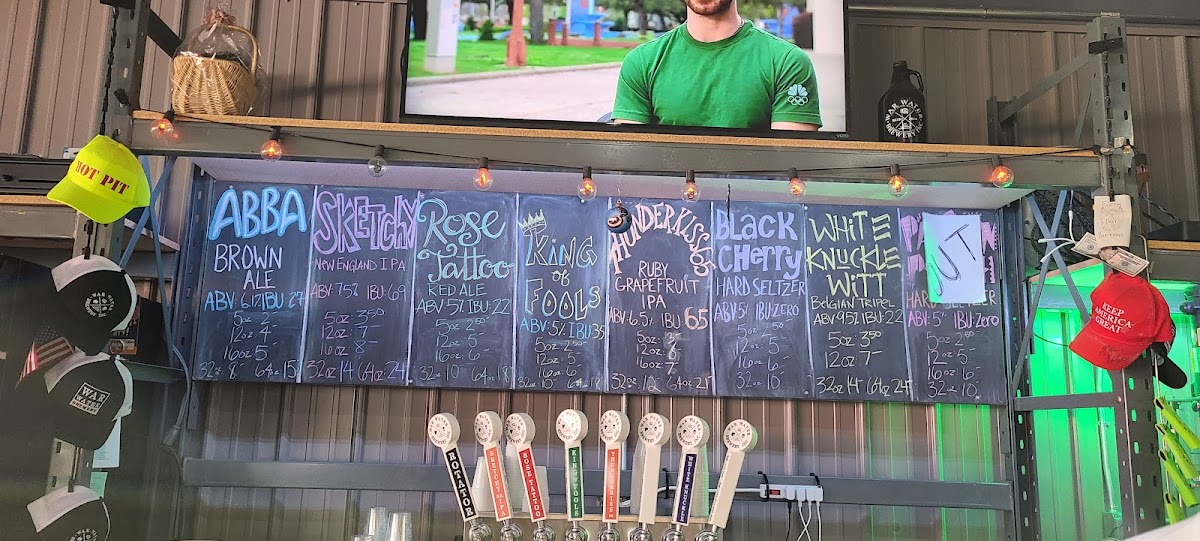 HOT PIT
WAR WATER
BREWERY
WAR
WATER
BREWERY
KEEP
AMERICA
GREAT
ABBA
BROWN
ALE
ABV: 6.1% IBU-27
5oz 2-
12oz 4-
16oz 5-
32oz 8- 64oz 15
SKETCHY
NEW ENGLAND IPA
ABV: 7.5% IBU-69
5oz 3.50
12oz 7-
16oz 8-
32oz 14 64oz 24
ROSE
Tattoo
RED ALE
ABV 5% IBU: 22
5oz 2.50
12oz: 5-
16oz: 6-
32oz 10 64oz 18
KING
of
FOOLS
ABV: 5% IBU 35
5oz 2.50
12oz 5-
16oz 6-
32oz 10- 64oz 18
THUNDERKISS65
RUBY
GRAPEFRUIT
IPA
ABV-6.5% IBU 65
5oz 3-
12oz 6-
32oz 12 64oz 21
BLACK
CHERRY
HARD SELTZER
ABV 5% IBU: ZERO
5oz 2.50
12oz 5-
16oz 6-
32oz 10
WHITE
KNUCKLE
WITT
BELGIAN TRIPEL
ABV 9.5% IBU-22
5oz 3.50
12oz 7-
32oz 14 64oz 24
OUT
HARD
ABV: 5% IBU: Zero
5oz 2.50
12oz 5-
16oz 6-
32oz 10-
ROTATOR
SKETCHY IPA
ROSE TATTOO
KING FOOLS
THUNDERKISS
WHITE KNUCKLE